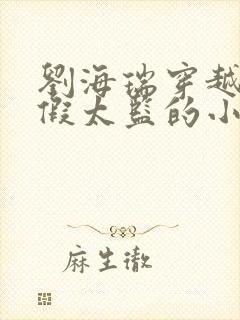 劉海瑞穿越
假太監的小
麻生徹